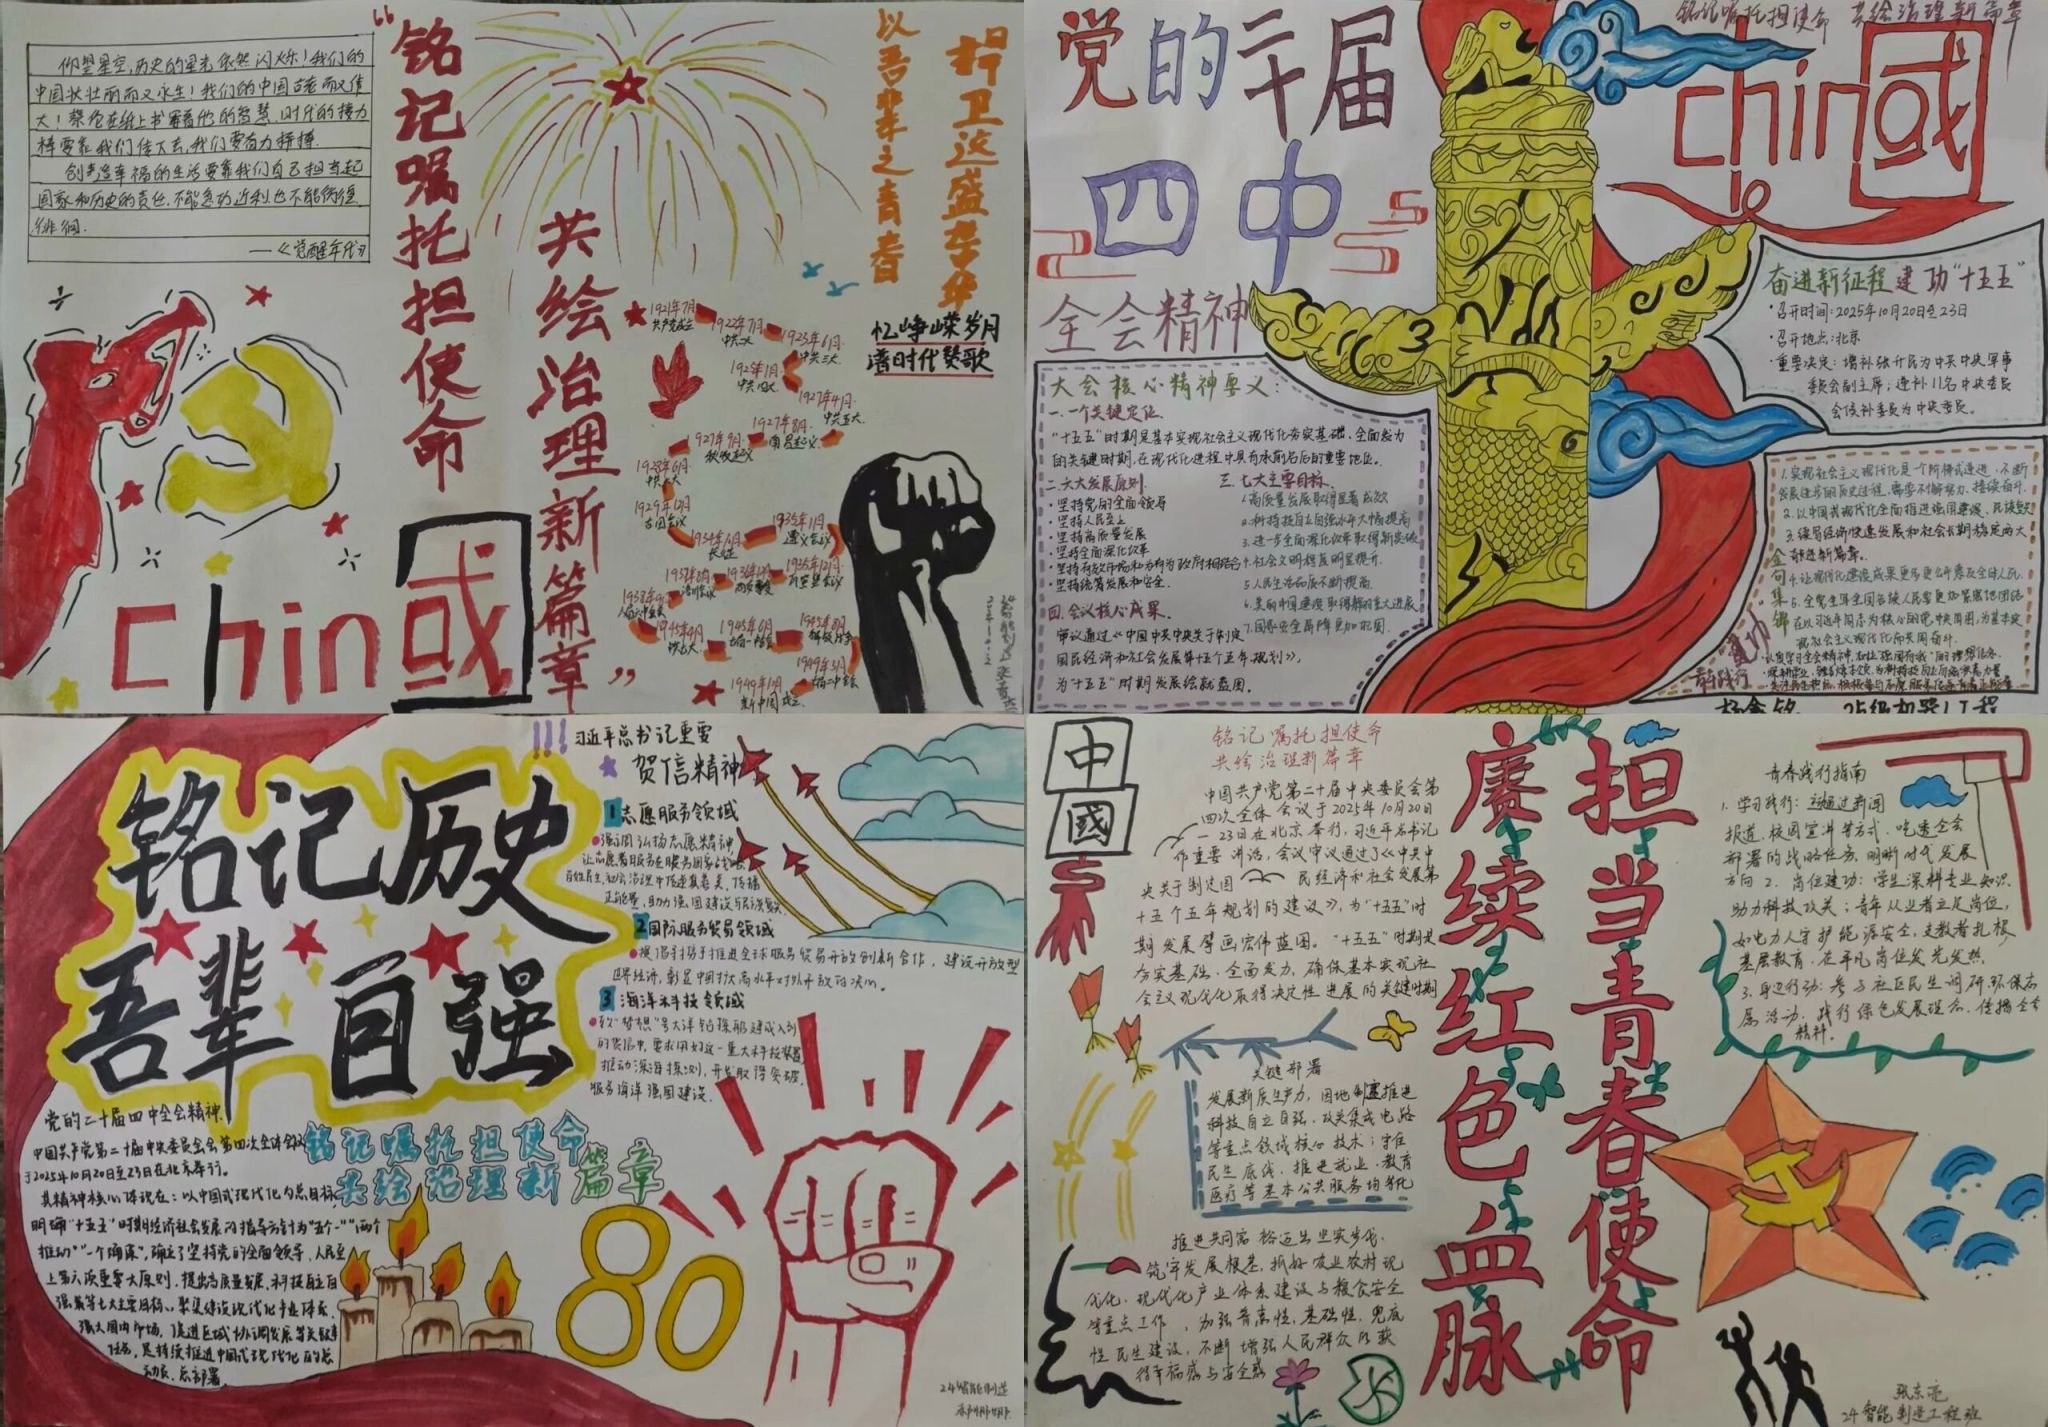 仰望星空,历史的星光依然闪烁!我们的
中国状壮丽而又永生!我们的中国古老而又伟
大!蔡伦在纸上书写着他的智慧,时代的接力
棒要靠我们传下去,我们要奋力拼搏.
创造幸福的生活要靠我们自己担当起
国家和历史的责任,不能急功近利,也不能彷徨
徘徊.
——《觉醒年代》
“铭记嘱托担使命
共绘治理新篇章”
以吾辈之青春
捍卫这盛世中华
忆峥嵘岁月
谱时代赞歌
1921年7月
共产党成立
1922年7月
中共二大
1923年6月
中共三大
中共四大
1927年4月
中共五大
1927年8月
南昌起义
1927年9月
秋收起义
1928年6月
中共六大
1929年12月
古田会议
1934年10月
长征
1935年1月
遵义会议
1935年12月
瓦窑堡会议
洛川会议
1945年4月
中共七大
1949年3月
新中国成立
chin國
党的二十届
四中
全会精神
铭记嘱托担使命 共绘治理新篇章
chin國
大会核心精神要义:
一.一个关键定位.
“十五五”时期是基本实现社会主义现代化夯实基础、全面发力
的关键时期,在现代化进程中具有承前启后的重要地位.
二.六大发展原则.
·坚持党的全面领导
·坚持人民至上
·坚持高质量发展
·坚持全面深化改革
·坚持有效市场和有为政府相结合
·坚持统筹发展和安全.
三.七大主要目标.
1.高质量发展取得显著成效
2.科技自立自强水平大幅提高
3.进一步全面深化改革取得新突破
4.社会文明程度明显提升.
5.人民生活品质不断提高.
6.美丽中国建设取得新的重大进展
7.国家安全屏障更加巩固.
四.会议核心成果.
审议通过《中国中共中央关于制定
国民经济和社会发展第十五个五年规划》,
为“十五五”时期发展绘就蓝图.
奋进新征程建功“十五五”
·召开时间:2025年10月20日至23日
·召开地点:北京
·重要决定:增补张升民为中共中央军事
委员会副主席;递补11名中央委员
会候补委员为中央委员.
金句集锦
1.实现社会主义现代化是一个阶梯式递进、不断
发展进步的历史过程,需要不懈努力、接续奋斗.
2.以中国式现代化全面推进强国建设、民族复兴
3.续写经济快速发展和社会长期稳定两大
奇迹新篇章.
4.让现代化建设成果更多更公平惠及全体人民.
5.全党全军全国各族人民要更加紧密地团结
在以习近平同志为核心的党中央周围,为基本实
现社会主义现代化而共同奋斗.
25级机器人工程
铭记历史
吾辈自强
!!!习近平总书记重要
贺信精神
1志愿服务领域
强调弘扬志愿精神
2国际服务贸易领域
提倡携手推进全球服务贸易开放创新合作,建设开放型
世界经济,彰显中国扩大高水平对外开放的决心.
3海洋科技领域
致“梦想”号大洋钻探船建成入列
的贺信中,要求用好这一重大科技装置
推动深海探测,开发取得突破,
服务海洋强国建设.
党的二十届四中全会精神.
中国共产党第二十届中央委员会第四次全体会议
于2025年10月20日至23日在北京举行。
其精神核心体现在:以中国式现代化为总目标,
明确“十五五”时期经济社会发展的指导方针为“五个一”“两个
推动”“一个确保”,确立了坚持党的全面领导、人民至
上等六项重要大原则,提出高质量发展、科技自立自
强等七大主要目标,聚焦建设现代化产业体系、
强大国内市场、促进区域协调发展等关键
任务,是持续推进中国式现代化的总
动员、总部署
铭记嘱托担使命
共绘治理新篇章
80
24智能制造
中國
铭记嘱托担使命
共绘治理新篇章
中国共产党第二十届中央委员会第
四次全体会议于2025年10月20日
—23日在北京举行,习近平总书记
作重要讲话,会议审议通过了《中共中
央关于制定国民经济和社会发展第
十五个五年规划的建议》,为“十五五”时
期发展擘画宏伟蓝图。“十五五”时期是
夯实基础、全面发力,确保基本实现社
会主义现代化取得决定性进展的关键时期
关键部署
发展新质生产力,因地制宜推进
科技自立自强、攻关集成电路
等重点领域核心技术;守住
民生底线,推进就业、教育
医疗等基本公共服务均等化
推进共同富裕迈出坚实步伐.
筑牢发展根基,抓好农业农村现
代化、现代化产业体系建设与粮食安全
等重点工作,加强普惠性、基础性、兜底
性民生建设,不断增强人民群众的获
得幸福感与安全感
赓续红色血脉
担当青春使命
青春践行指南
1.学习践行:通过新闻
报道、校园宣讲等方式,吃透全会
部署的战略任务,明晰时代发展
方向 2.岗位建功:学生深耕专业知识,
助力科技攻关;青年从业者立足岗位,
如电力人守护能源安全,支教者扎根
基层教育,在平凡岗位发光发热.
3.身边行动:参与社区民生调研、环保志
愿活动,践行绿色发展理念,传播全会
精神.
张东亮
24智能制造工程班